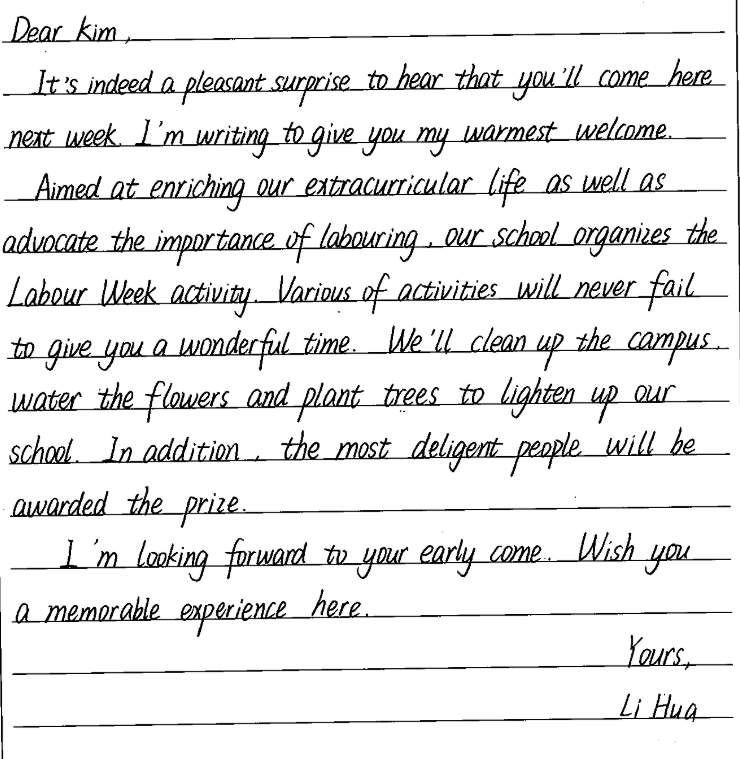 Dear Kim,
It's indeed a pleasant surprise to hear that you'll come here
next week. I'm writing to give you my warmest welcome.
Aimed at enriching our extracurricular life as well as
advocate the importance of labouring, our school organizes the
Labour Week activity. Various of activities will never fail
to give you a wonderful time. We'll clean up the campus,
water the flowers and plant trees to lighten up our
school. In addition, the most deligent people will be
awarded the prize.
I'm looking forward to your early come. Wish you
a memorable experience here.
Yours,
Li Hua